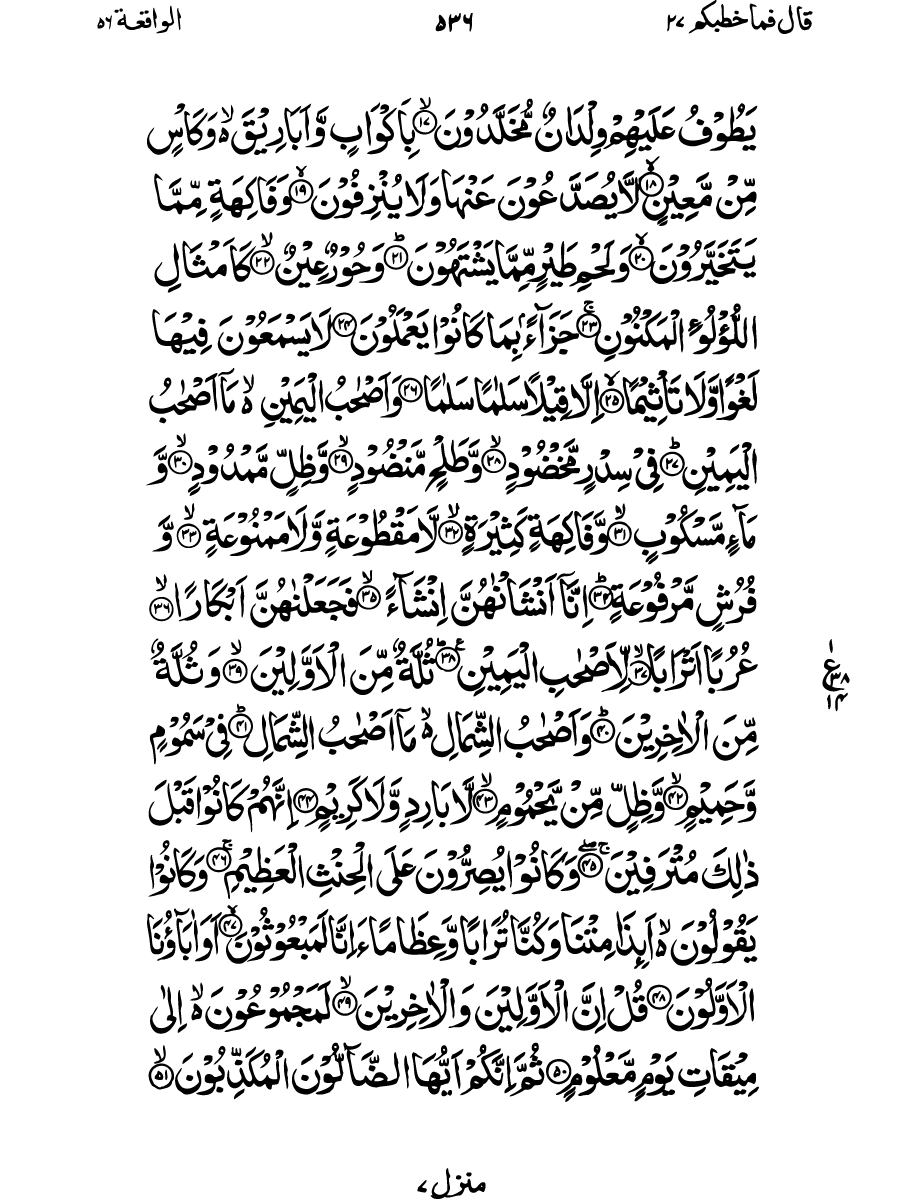 قال فما خطبكم ٢٧ ٥٣٦ الواقعة ٥٦
يَطُوْفُ عَلَيْهِمْ وِلْدَانٌ مُّخَلَّدُوْنَ ۙ‏﴿۱۷﴾ بِاَكْوَابٍ وَّاَبَارِيْقَ ۙ وَكَاْسٍ
مِّنْ مَّعِيْنٍ ۙ‏﴿۱۸﴾ لَّا يُصَدَّعُوْنَ عَنْهَا وَلَا يُنْزِفُوْنَ ۙ‏﴿۱۹﴾ وَفَاكِهَةٍ مِّمَّا
يَتَخَيَّرُوْنَ ۙ‏﴿۲۰﴾ وَلَحْمِ طَيْرٍ مِّمَّا يَشْتَهُوْنَ ؕ‏﴿۲۱﴾ وَحُوْرٌ عِيْنٌ ۙ‏﴿۲۲﴾ كَاَمْثَالِ
اللُّؤْلُوٴِ الْمَكْنُوْنِ ۚ‏﴿۲۳﴾ جَزَآءًۢ بِمَا كَانُوْا يَعْمَلُوْنَ‏﴿۲۴﴾ لَا يَسْمَعُوْنَ فِيْهَا
لَغْوًا وَّلَا تَاْثِيْمًا ۙ‏﴿۲۵﴾ اِلَّا قِيْلًا سَلٰمًا سَلٰمًا‏﴿۲۶﴾ وَاَصْحٰبُ الْيَمِيْنِ ۙ مَاۤ اَصْحٰبُ
الْيَمِيْنِ ؕ‏﴿۲۷﴾ فِىْ سِدْرٍ مَّخْضُوْدٍ ۙ‏﴿۲۸﴾ وَّطَلْحٍ مَّنْضُوْدٍ ۙ‏﴿۲۹﴾ وَّظِلٍّ مَّمْدُوْدٍ ۙ‏﴿۳۰﴾ وَّ
مَآءٍ مَّسْكُوْبٍ ۙ‏﴿۳۱﴾ وَّفَاكِهَةٍ كَثِيْرَةٍ ۙ‏﴿۳۲﴾ لَّا مَقْطُوْعَةٍ وَّلَا مَمْنُوْعَةٍ ۙ‏﴿۳۳﴾ وَّ
فُرُشٍ مَّرْفُوْعَةٍ ؕ‏﴿۳۴﴾ اِنَّاۤ اَنْشَاْنٰهُنَّ اِنْشَآءً ۙ‏﴿۳۵﴾ فَجَعَلْنٰهُنَّ اَبْكَارًا ۙ‏﴿۳۶﴾
عُرُبًا اَتْرَابًا ۙ‏﴿۳۷﴾ لِّاَصْحٰبِ الْيَمِيْنِ ؕ‏﴿۳۸﴾ ثُلَّةٌ مِّنَ الْاَوَّلِيْنَ ۙ‏﴿۳۹﴾ وَثُلَّةٌ
ع ٣٨ ١٤
مِّنَ الْاٰخِرِيْنَ ؕ‏﴿۴۰﴾ وَاَصْحٰبُ الشِّمَالِ ۙ مَاۤ اَصْحٰبُ الشِّمَالِ ؕ‏﴿۴۱﴾ فِىْ سَمُوْمٍ
وَّحَمِيْمٍ ۙ‏﴿۴۲﴾ وَّظِلٍّ مِّنْ يَّحْمُوْمٍ ۙ‏﴿۴۳﴾ لَّا بَارِدٍ وَّلَا كَرِيْمٍ‏﴿۴۴﴾ اِنَّهُمْ كَانُوْا قَبْلَ
ذٰلِكَ مُتْرَفِيْنَ ۚ ۖ‏﴿۴۵﴾ وَكَانُوْا يُصِرُّوْنَ عَلَى الْحِنْثِ الْعَظِيْمِ ۚ‏﴿۴۶﴾ وَكَانُوْا
يَقُوْلُوْنَ ۙ اَٮِٕذَا مِتْنَا وَكُنَّا تُرَابًا وَّعِظَامًا ءَاِنَّا لَمَبْعُوْثُوْنَ ۙ‏﴿۴۷﴾ اَوَاٰبَآؤُنَا
الْاَوَّلُوْنَ‏﴿۴۸﴾ قُلْ اِنَّ الْاَوَّلِيْنَ وَالْاٰخِرِيْنَ ۙ‏﴿۴۹﴾ لَمَجْمُوْعُوْنَ ۙ اِلٰى
مِيْقَاتِ يَوْمٍ مَّعْلُوْمٍ‏﴿۵۰﴾ ثُمَّ اِنَّكُمْ اَيُّهَا الضَّآلُّوْنَ الْمُكَذِّبُوْنَ ۙ‏﴿۵۱﴾
منزل ٧